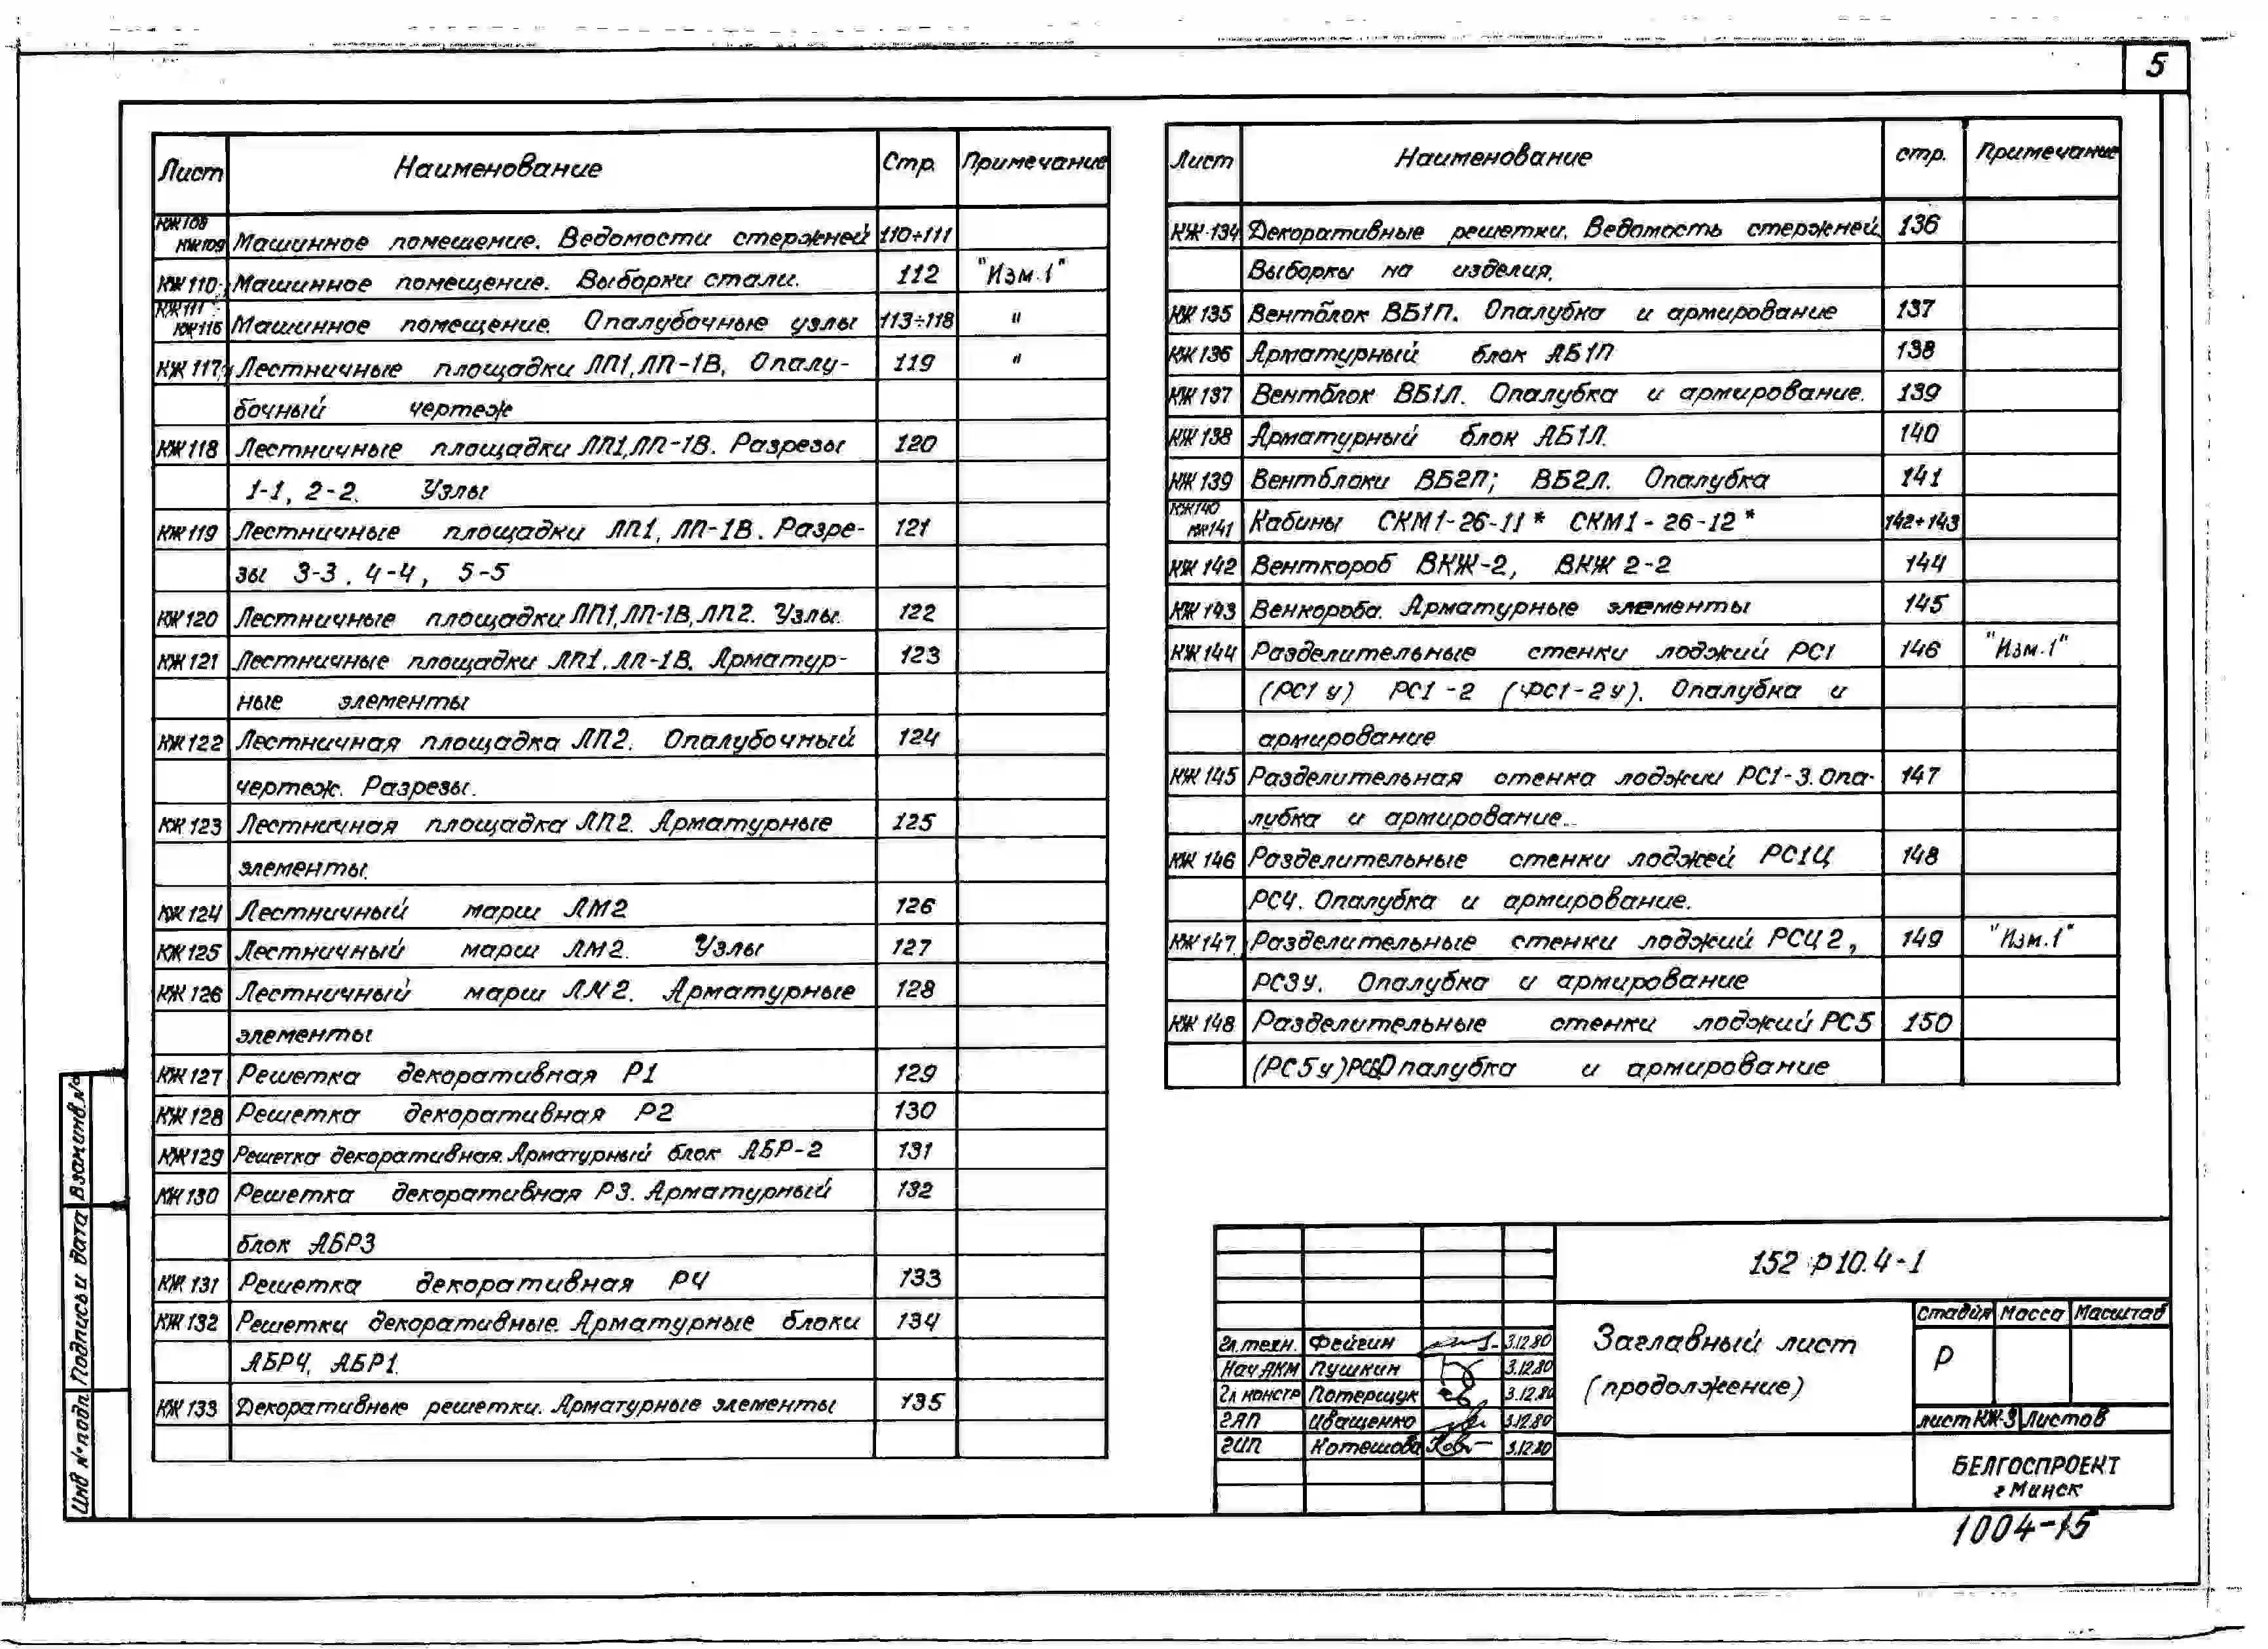 5
Лист Наименование Стр. Примечание
КЖ108
КЖ109 Машинное помещение. Ведомости стержней 110÷111
КЖ110 Машинное помещение. Выборки стали. 112 "Изм.1"
КЖ111÷
КЖ116 Машинное помещение. Опалубочные узлы 113÷118 "
КЖ117 Лестничные площадки ЛП1, ЛП-1В, Опалу- 119 "
бочный чертеж
КЖ118 Лестничные площадки ЛП1, ЛП-1В. Разрезы 120
1-1, 2-2. Узлы
КЖ119 Лестничные площадки ЛП1, ЛП-1В. Разре- 121
зы 3-3, 4-4, 5-5
КЖ120 Лестничные площадки ЛП1, ЛП-1В, ЛП2. Узлы. 122
КЖ121 Лестничные площадки ЛП1, ЛП-1В. Арматур- 123
ные элементы
КЖ122 Лестничная площадка ЛП2. Опалубочный 124
чертеж. Разрезы.
КЖ123 Лестничная площадка ЛП2. Арматурные 125
элементы.
КЖ124 Лестничный марш ЛМ2 126
КЖ125 Лестничный марш ЛМ2. Узлы 127
КЖ126 Лестничный марш ЛМ2. Арматурные 128
элементы
КЖ127 Решетка декоративная Р1 129
КЖ128 Решетка декоративная Р2 130
КЖ129 Решетка декоративная. Арматурный блок АБР-2 131
КЖ130 Решетка декоративная Р3. Арматурный 132
блок АБР3
КЖ131 Решетка декоративная Р4 133
КЖ132 Решетки декоративные. Арматурные блоки 134
АБР4, АБР1.
КЖ133 Декоративные решетки. Арматурные элементы 135
Лист Наименование стр. Примечание
КЖ-134 Декоративные решетки. Ведомость стержней. 136
Выборки на изделия.
КЖ135 Вентблок ВБ1П. Опалубка и армирование 137
КЖ136 Арматурный блок АБ1П 138
КЖ137 Вентблок ВБ1Л. Опалубка и армирование. 139
КЖ138 Арматурный блок АБ1Л. 140
КЖ139 Вентблоки ВБ2П; ВБ2Л. Опалубка 141
КЖ140
КЖ141 Кабины СКМ1-26-11* СКМ1-26-12* 142÷143
КЖ142 Венткороб ВКЖ-2, ВКЖ 2-2 144
КЖ143 Венкороба. Арматурные элементы 145
КЖ144 Разделительные стенки лоджий РС1 146 "Изм.1"
(РС1у) РС1-2 (ФС1-2у). Опалубка и
армирование
КЖ145 Разделительная стенка лоджии РС1-3. Опа- 147
лубка и армирование.
КЖ146 Разделительные стенки лоджей РС1Ц 148
РС4. Опалубка и армирование.
КЖ147 Разделительные стенки лоджий РСЦ2, 149 "Изм.1"
РС3у. Опалубка и армирование
КЖ148 Разделительные стенки лоджий РС5 150
(РС5у) Опалубка и армирование
Взаминв.№
Подпись и дата
Инв № подл.
152 р10.4-1
Гл.техн. Фейгин 3.12.80
Нач АКМ Пушкин 3.12.80
Гл констр Потерщук 3.12.80
ГАП Иващенко 3.12.80
ГИП Котешова 3.12.80
Заглавный лист
(продолжение)
Стадия Масса Масштаб
Р
лист КЖ-3 Листов
БЕЛГОСПРОЕКТ
г Минск
1004-15